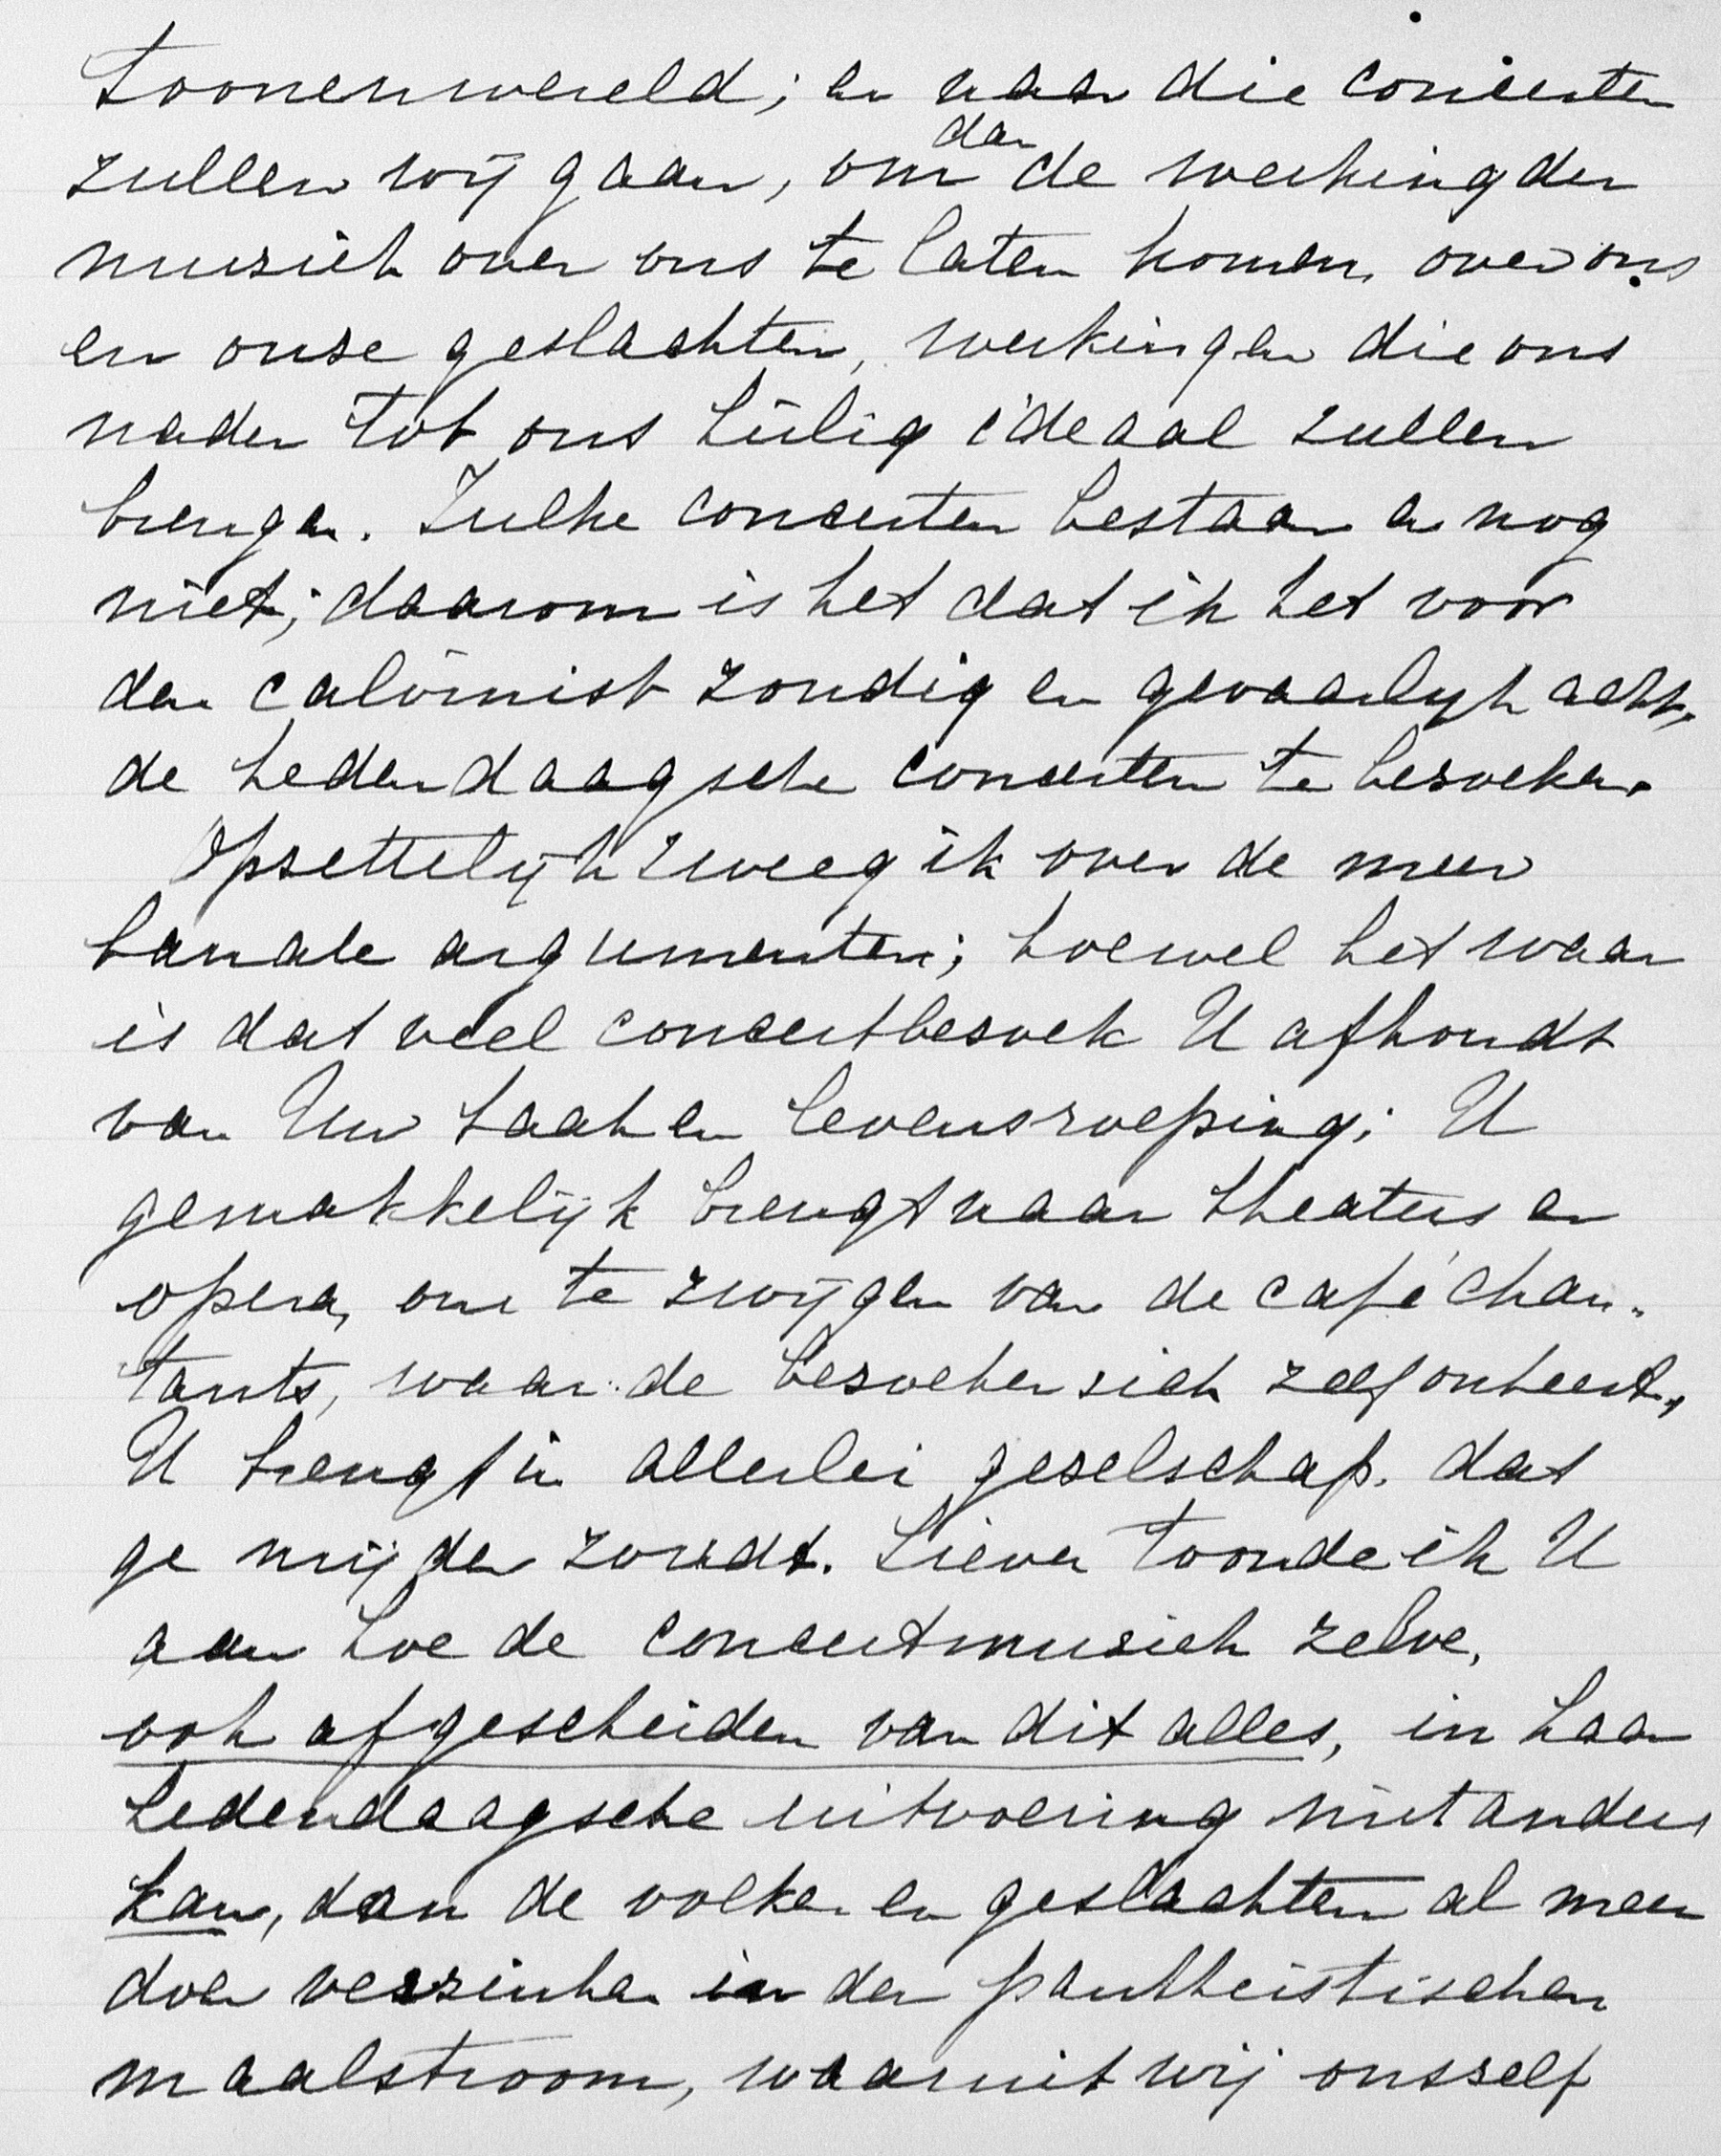 toonenwereld; en naar die concerten
zullen wij gaan, om dan de werking der
muziek over ons te laten komen, over ons
en onze geslachten, werkingen die ons
nader tot ons heilig ideaal zullen
brengen. Zulke concerten bestaan er nog
niet; daarom is het dat ik het voor
den calvinist zondig en gevaarlijk acht,
de hedendaagsche concerten te bezoeken.
Opzettelijk zweeg ik over de meer
banale argumenten; hoewel het waar
is dat veel concertbezoek U afhoudt
van Uw taak en levensroeping; U
gemakkelijk brengt naar theaters en
opera, om te zwijgen van de café chan-
tants, waar de bezoeker zich zelf onteert,
U brengt in allerlei gezelschap, dat
ge mijden zoudt. Liever toonde ik U
aan hoe de concertmuziek zelve,
ook afgescheiden van dit alles, in haar
hedendaagsche uitvoering niet anders
kan, dan de volken en geslachten al meer
doen verzinken in den pantheistischen
maalstroom, waaruit wij onszelf